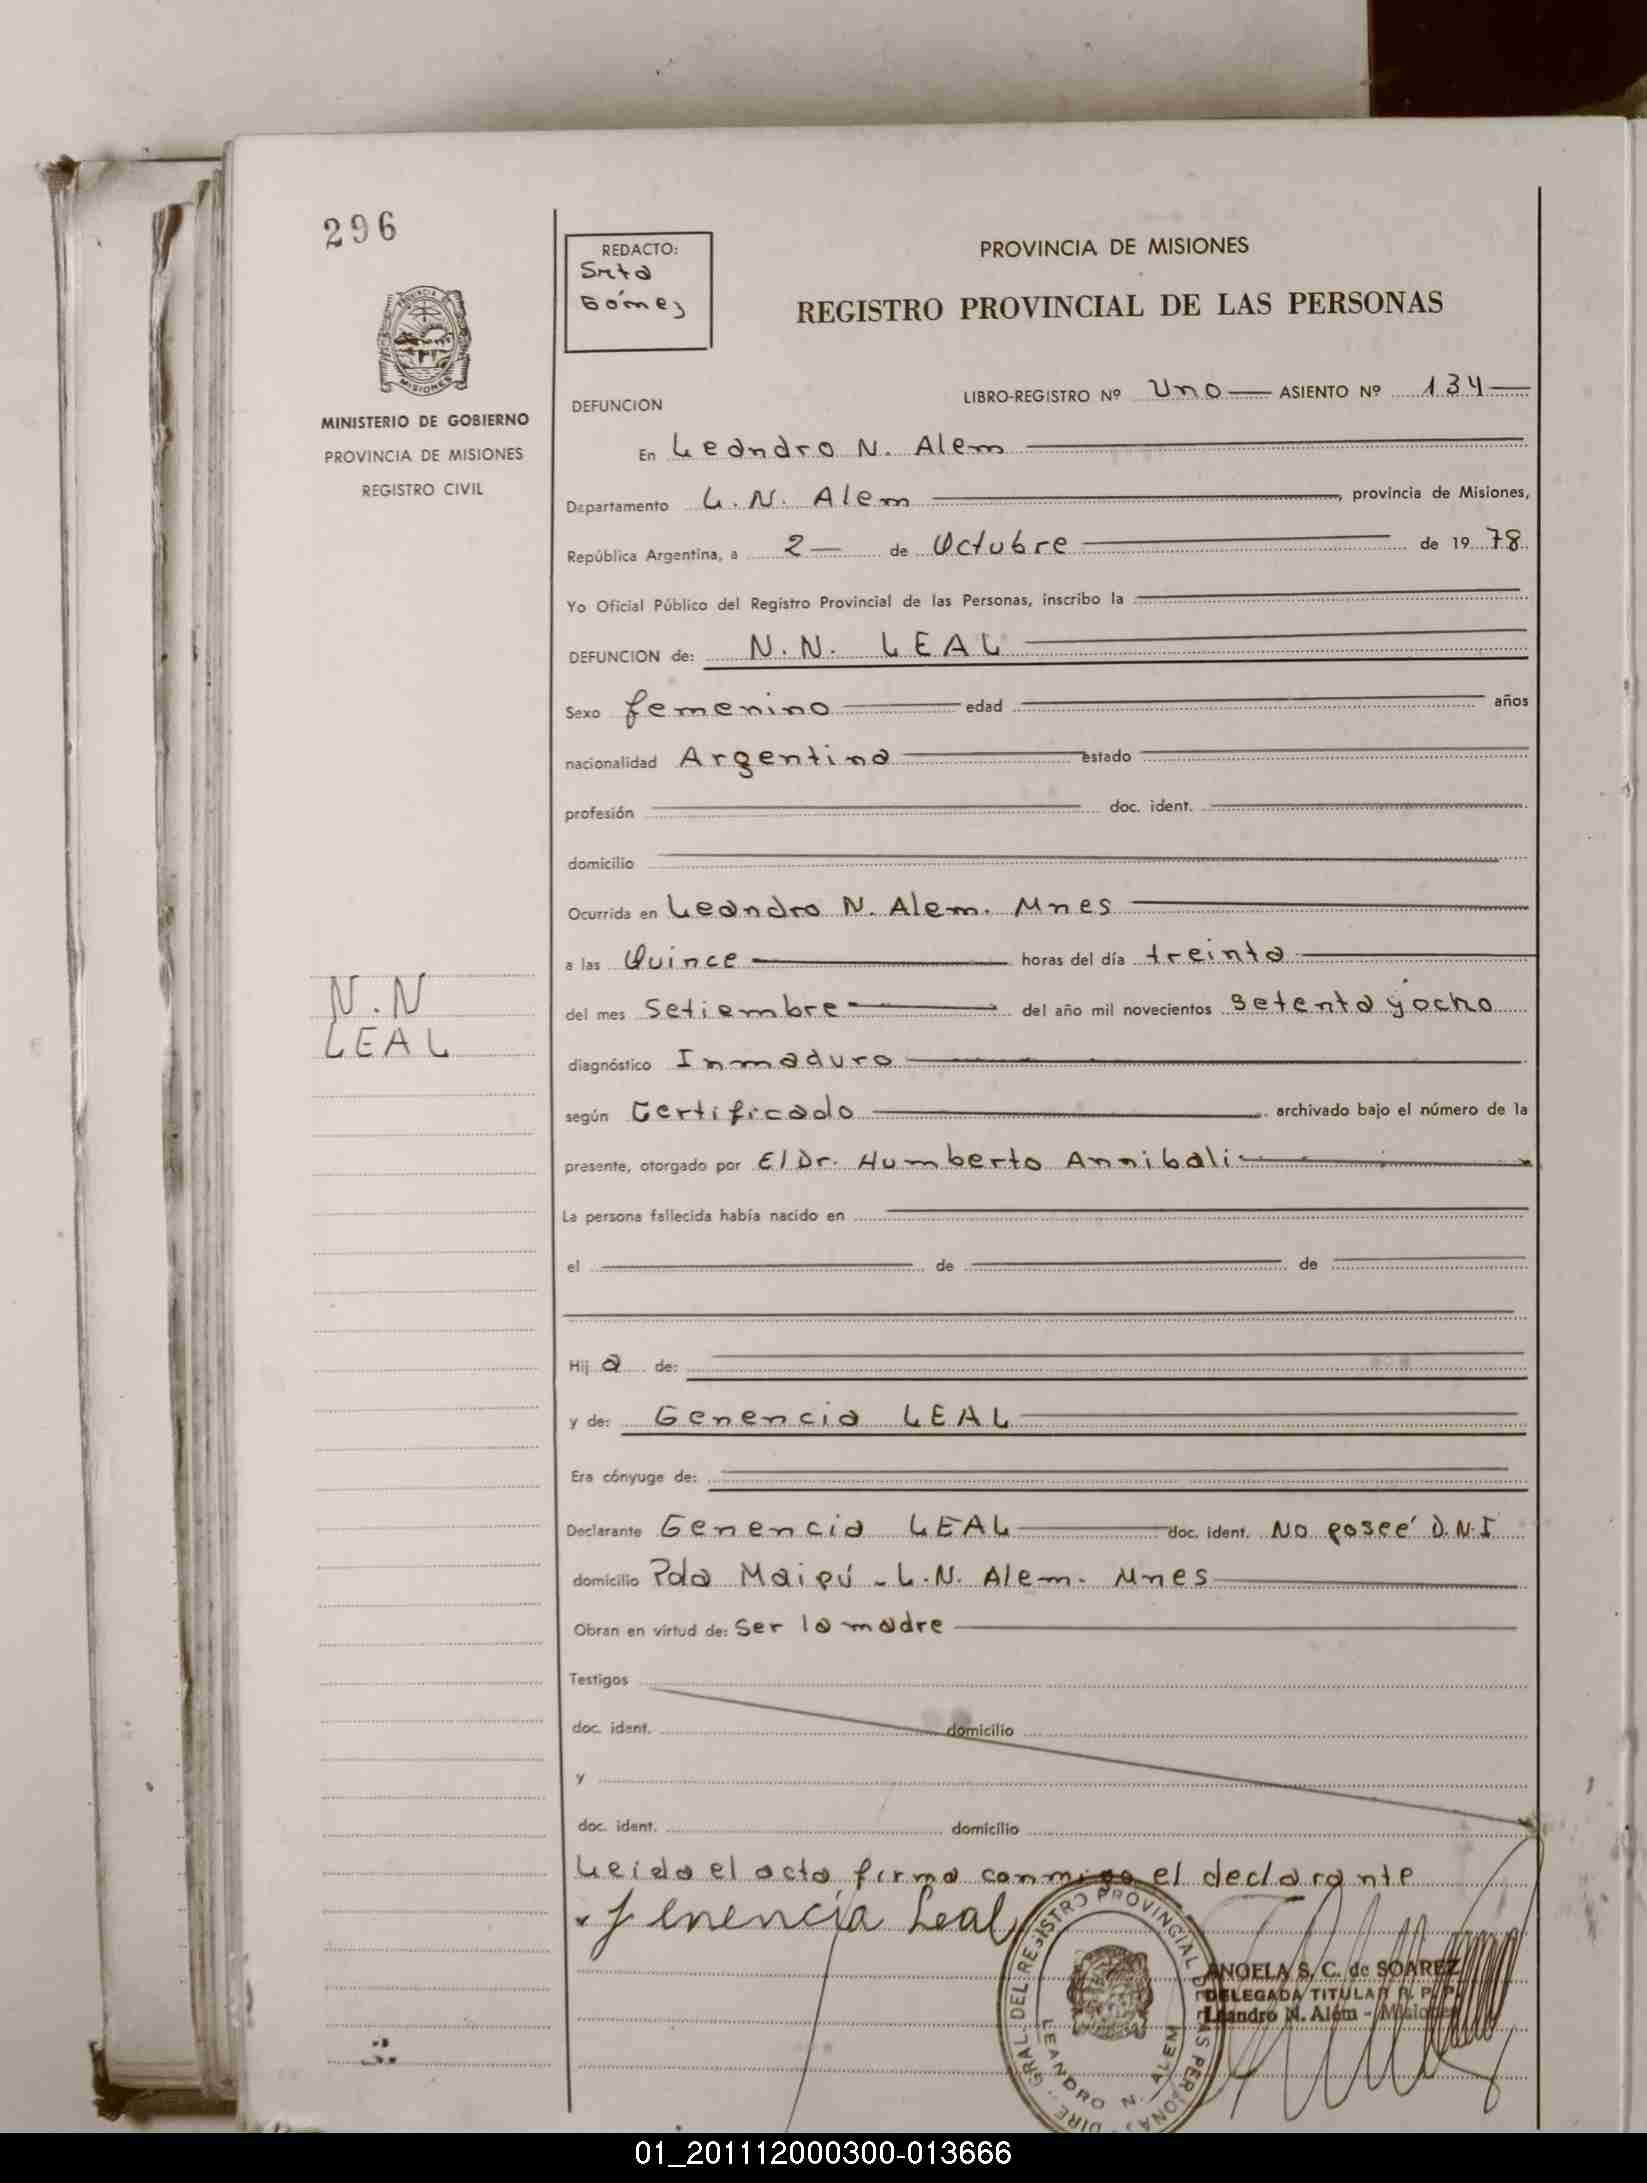 296
REDACTO:
Srta
Gómez
PROVINCIA DE MISIONES
REGISTRO PROVINCIAL DE LAS PERSONAS
MISIONES
MINISTERIO DE GOBIERNO
PROVINCIA DE MISIONES
REGISTRO CIVIL
DEFUNCION
LIBRO-REGISTRO Nº Uno ASIENTO Nº 134
En Leandro N. Alem
Departamento L. N. Alem, provincia de Misiones,
República Argentina, a 2 de Octubre de 1978
Yo Oficial Público del Registro Provincial de las Personas, inscribo la
DEFUNCION de: N. N. LEAL
Sexo femenino edad años
nacionalidad Argentina estado
profesión doc. ident.
domicilio
Ocurrida en Leandro N. Alem. Mnes
a las Quince horas del día treinta
del mes Setiembre del año mil novecientos setenta y ocho
diagnóstico Inmaduro
según Certificado archivado bajo el número de la
presente, otorgado por El Dr. Humberto Annibali
La persona fallecida había nacido en
el de de
Hija de:
y de: Genencia LEAL
Era cónyuge de:
Declarante Genencia LEAL doc. ident. No poseé D.N.I
domicilio Pda Maipú - L.N. Alem. Mnes
Obran en virtud de: Ser la madre
Testigos
doc. ident. domicilio
y
doc. ident. domicilio
Leida el acta, firma conmigo el declarante
Jenencia Leal
N.N
LEAL
DIRE. GRAL. DEL REGISTRO PROVINCIAL DE LAS PERSONAS
LEANDRO N. ALEM
ANGELA S. C. de SOAREZ
DELEGADA TITULAR R. P. P.
Leandro N. Alem - Misiones
01_201112000300-013666